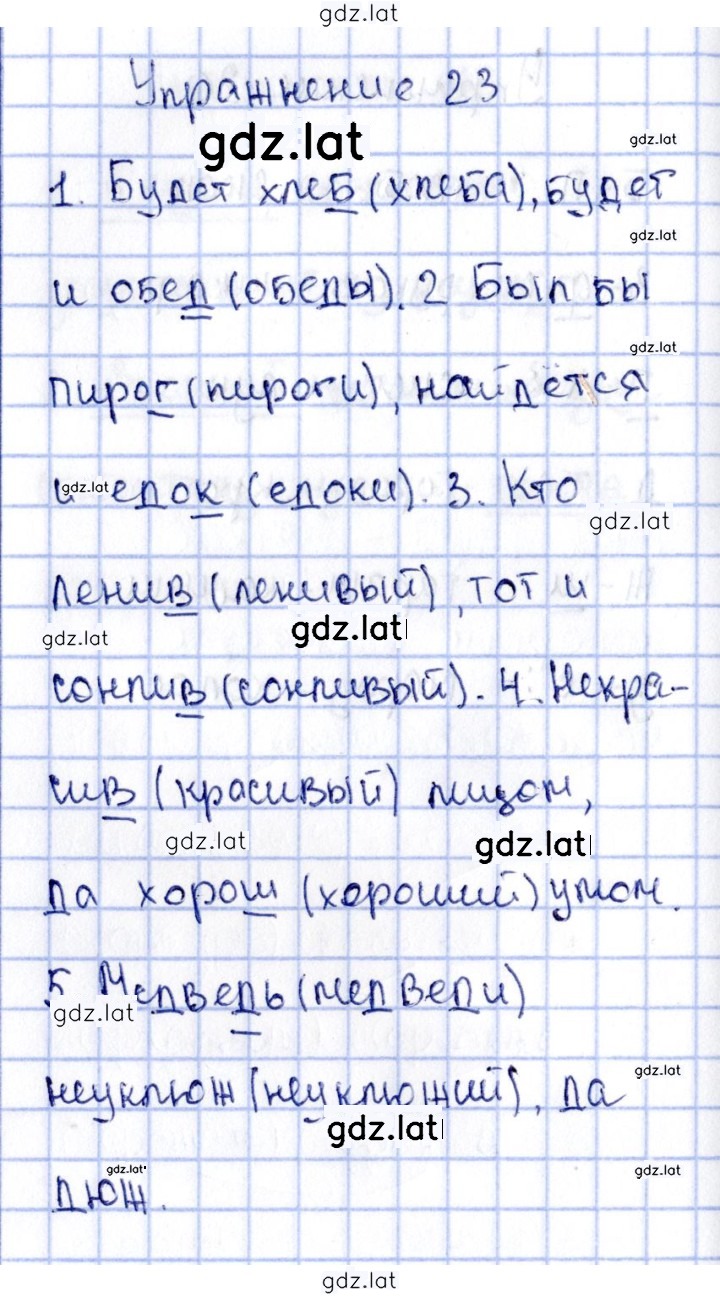 gdz.lat
Упражнение 23
gdz.lat
gdz.lat
1. Будет хлеб (хлеба), будет
gdz.lat
и обед (обеды). 2 Был бы
gdz.lat
пирог (пироги), найдётся
gdz.lat
и едок (едоки). 3. Кто
gdz.lat
ленив (ленивый), тот и
gdz.lat
gdz.lat
сонлив (сонливый). 4. Некра-
сив (красивый) лицом,
gdz.lat
gdz.lat
да хорош (хороший) умом.
5 Медведь (медведи)
gdz.lat
gdz.lat
неуклюж (неуклюжий), да
gdz.lat
gdz.lat
gdz.lat
дюж.
gdz.lat